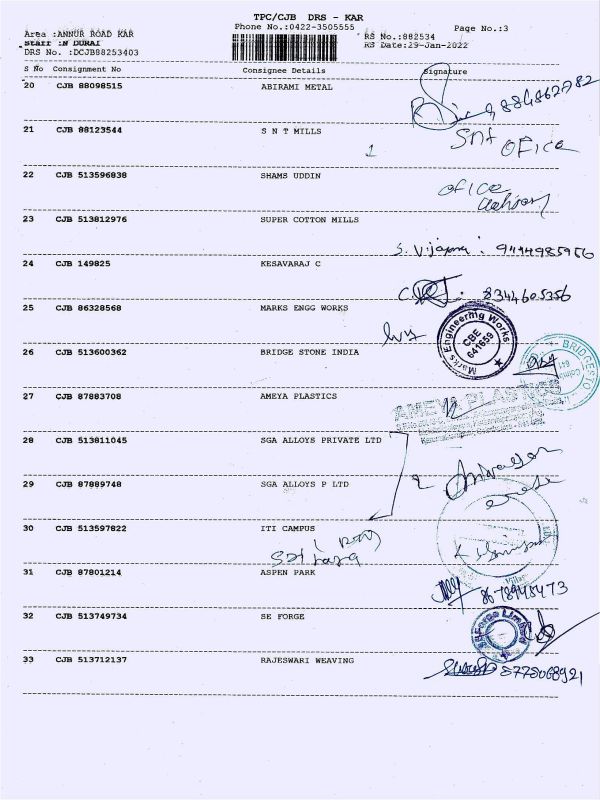 TPC/CJB DRS - KAR
Phone No.:0422-3505555
Page No.:3
Area :ANNUR ROAD KAR
Staff :N DURAI
DRS No. :DCJB88253403
RS No.:882534
RS Date:29-Jan-2022
S No Consignment No Consignee Details Signature
20 CJB 88098515 ABIRAMI METAL
21 CJB 88123544 S N T MILLS
SNT OFICE
1
22 CJB 513596838 SHAMS UDDIN
OFICE
23 CJB 513812976 SUPER COTTON MILLS
S. Vijaya : 9444985956
24 CJB 149825 KESAVARAJ C
8344605356
25 CJB 86328568 MARKS ENGG WORKS
Marks Engineering Works
CBE
641659
26 CJB 513600362 BRIDGE STONE INDIA
BRIDGESTO
27 CJB 87883708 AMEYA PLASTICS
AMEYA PLASTICS
28 CJB 513811045 SGA ALLOYS PRIVATE LTD
29 CJB 87889748 SGA ALLOYS P LTD
2
30 CJB 513597822 ITI CAMPUS
31 CJB 87801214 ASPEN PARK
8678945473
32 CJB 513749734 SE FORGE
SE Forge Limited
33 CJB 513712137 RAJESWARI WEAVING
8778068921